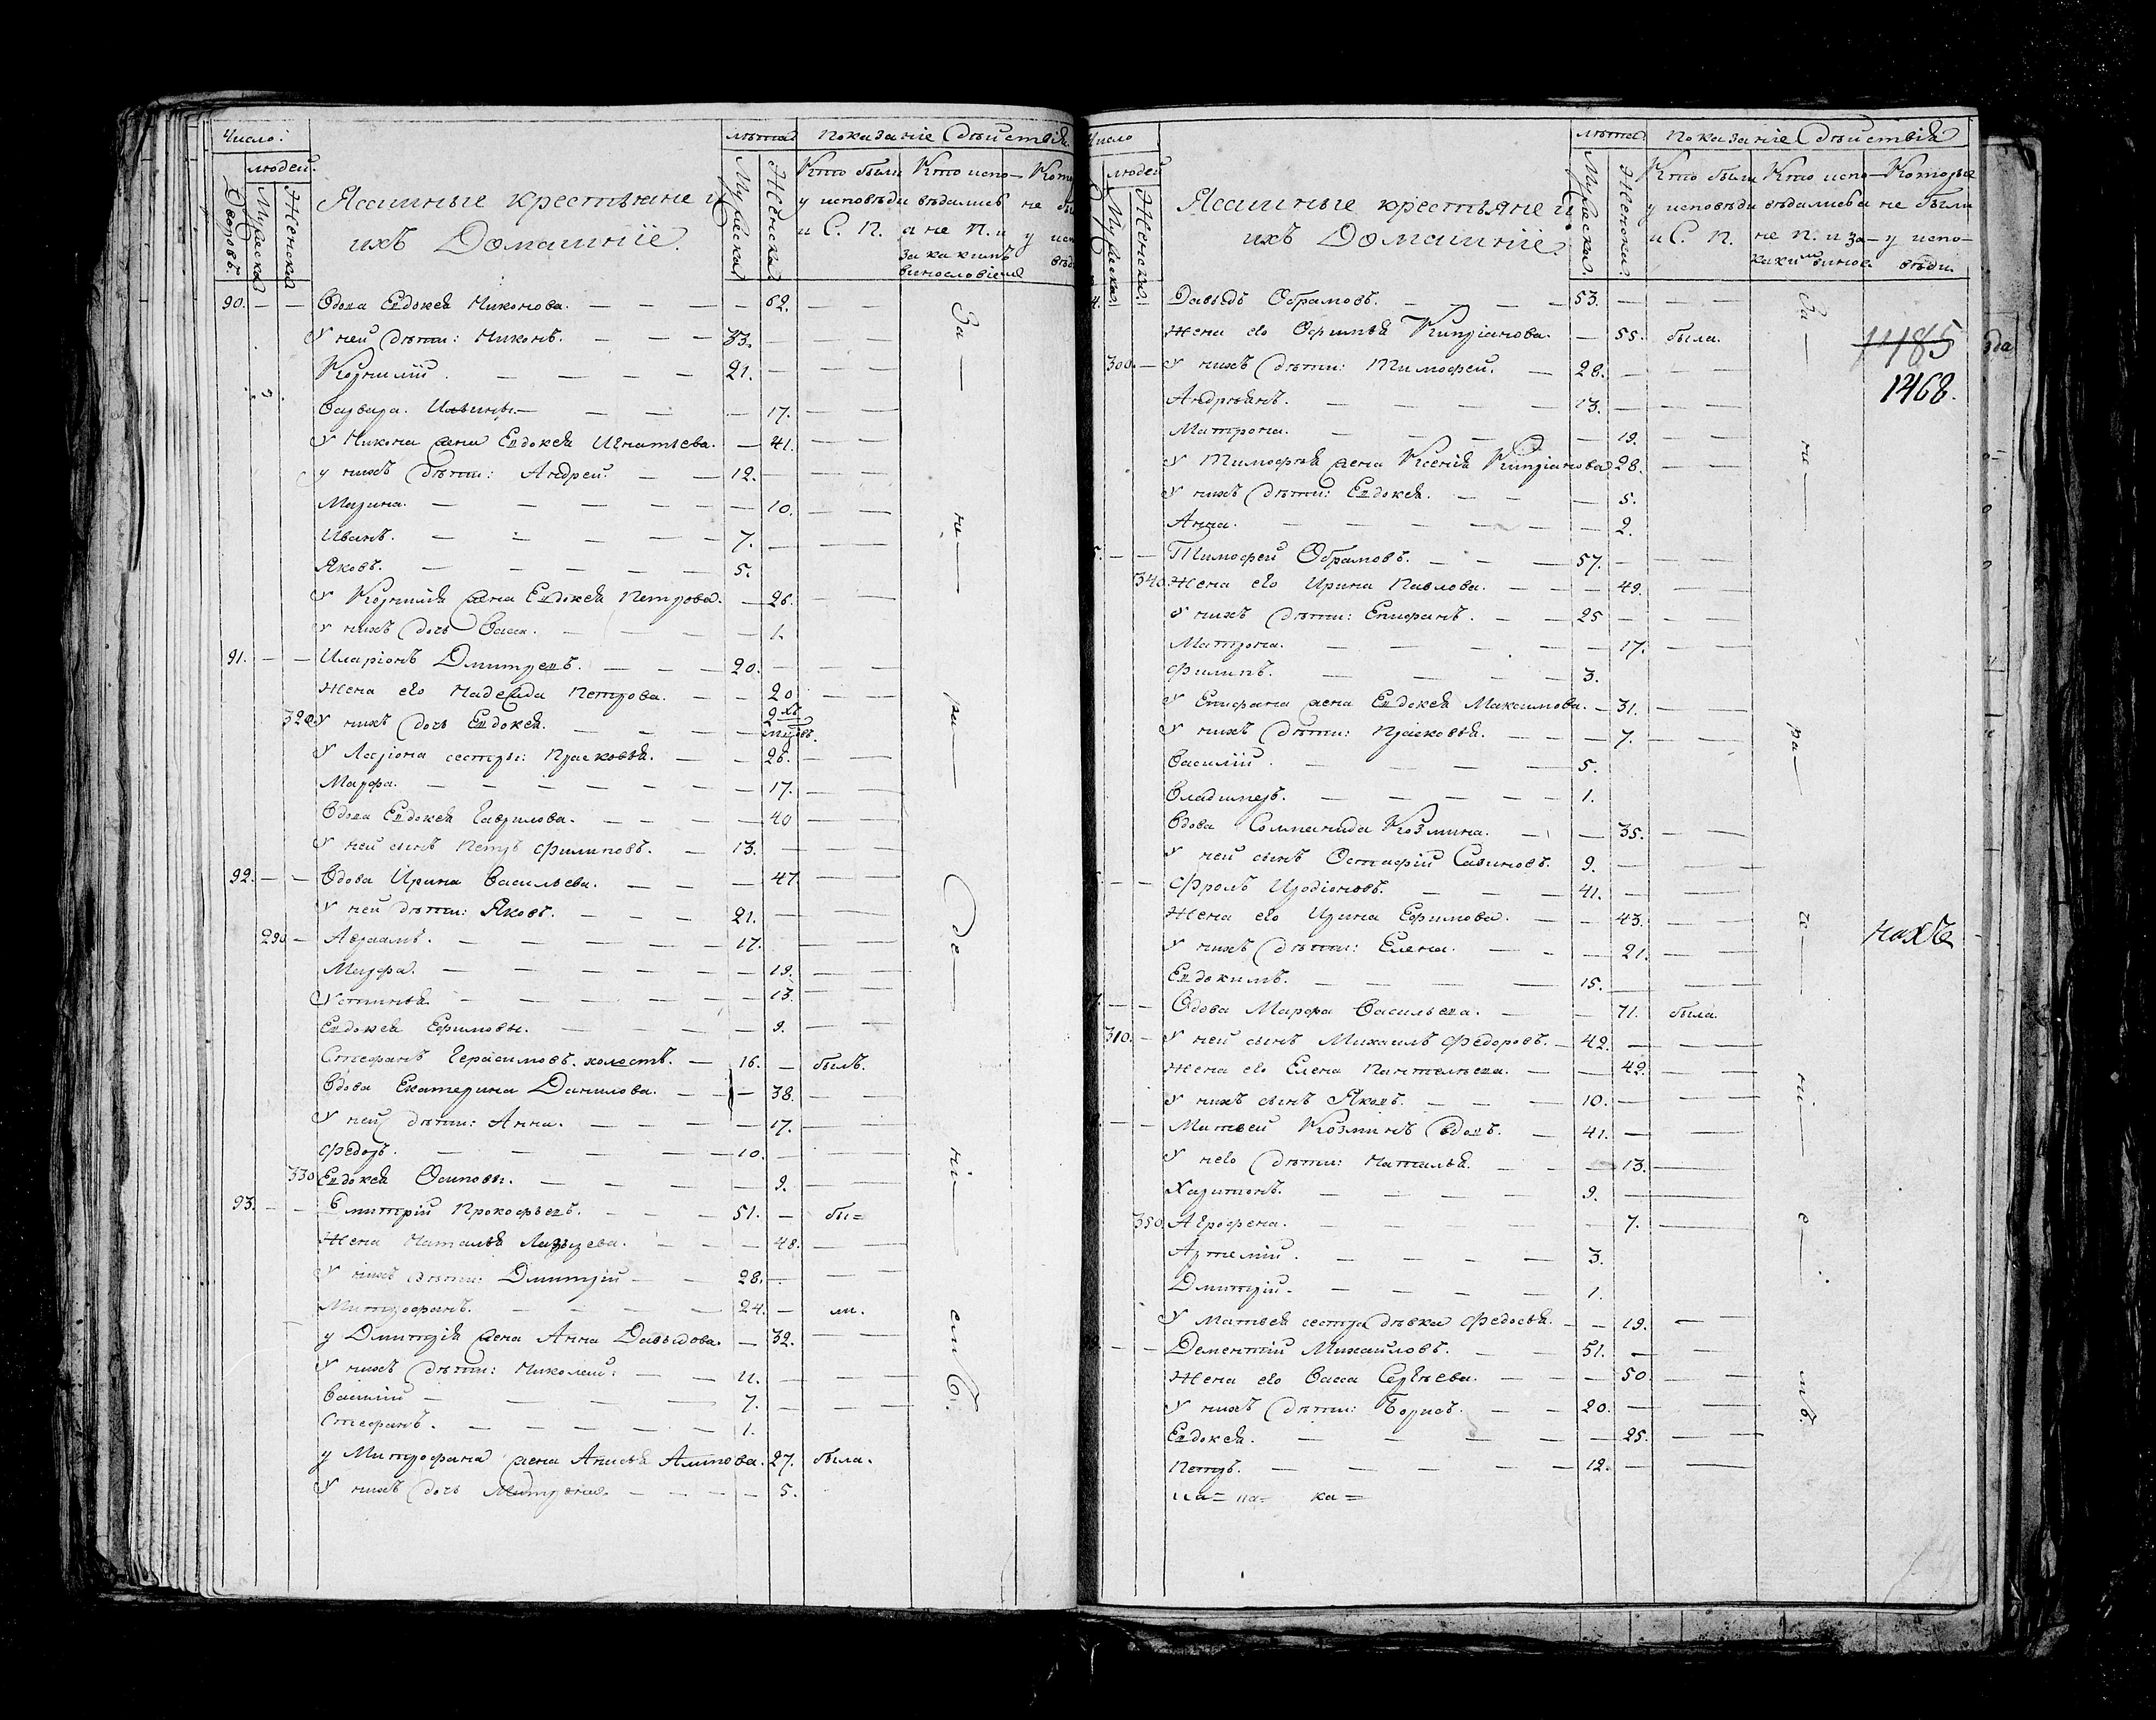 Число:
людей.
Дворовъ.
Мужеска
Женска
Ясашные крестьяне и
ихъ Домашнїе.
лѣта
Мужеска
Женска.
Показанїе Дѣйствїя
Кто были
у исповѣди
и С. П.
Кто испо-
вѣдались
а не П. и
за какимъ
винословїемъ
90. — — Вдова Евдокея Никонова. — 62.
У ней дѣти: Никонъ. — 33.
Корнилїй. — 21.
Варвара. — 17.
У Никона жена Евдокея Игнатьева. — 41.
у нихъ дѣти: Андрей. — 12.
Марина. — 10.
Иванъ. — 7.
Яковъ. — 5.
У Корнилїя жена Евдокея Петрова. — 26.
У нихъ дочь Васса. — 1.
91. — — Иларїонъ Дмитревъ. — 20.
Жена его Надежда Петрова. — 20
320. У нихъ дочь Евдокея. — 2хъ
У Ларїона сестры: Прасковья. — 26.
Марфа. — 17.
Вдова Евдокея Гаврилова. — 40
У ней сынъ Петръ Филиповъ. — 13.
92. — — Вдова Ирина Васильева. — 47
У ней дѣти: Яковъ. — 21.
290 — Авраамъ. — 17.
Марфа. — 19.
Устинья. — 13.
Евдокея Ефимовы. — 9.
Стефанъ Герасимовъ. холостъ. — 16. — былъ.
Вдова Екатерина Данилова. — 38.
У ней дѣти: Анна. — 17.
Федоръ. — 10.
330 Евдокея Осиповы. — 9.
93. — — Дмитрїй Прокофьевъ. — 51. — бы=
Жена Наталья Лазарева. — 48.
У нихъ дѣти: Дмитрїй — 28.
Митрофанъ. — 24. — ли.
у Дмитрїя жена Анна Давыдова. — 32.
У нихъ дѣти: Николай. — 11.
Василїй — 7.
Стефанъ. — 1.
у Митрофана жена Анисья 27. была.
У нихъ дочь Матрена. — 5.
За — не — ра — де — нї — емъ.
Число
людей
Мужеска
Женска
Ясашные крестьяне и
ихъ Домашнїе.
лѣта
Мужеска.
Женска.
Показанїе Дѣйствїя
Кто были
у исповѣди
и С. П.
Кто испо-
вѣдались а
не П. и за
какимъ винос.
Которые
не были
у испо-
вѣди.
Давыдъ Обрамовъ. — 53.
Жена его Офимья Кипрїанова. — 55. была.
300. — У нихъ дѣти: Тимофей. — 28.
Андреянъ. — 13.
Матрона. — 19.
У Тимофея жена Ксенїя Кипрїанова 28.
У нихъ дѣти: Евдокея. — 5.
Анна. — 2.
Тимофей Обрамовъ. — 57.
340. Жена его Ирина Павлова. — 49.
У нихъ дѣти: Епифанъ. — 25
Матрона. — 17.
Филипъ. — 3.
У Епифана жена Евдокея Максимова. — 31.
У нихъ дѣти: Прасковья. — 7.
Василїй. — 5.
Владимеръ. — 1.
Вдова Соломанида Козмина. — 35.
У ней сынъ Остафїй Савиновъ. 9.
Фролъ Иродїоновъ. — 41.
Жена его Ирина Ефимова. — 43.
У нихъ дѣти: Елена. — 21.
Евдокимъ. — 15.
Вдова Марфа Васильева. — 71. была.
310. — У ней сынъ Михаилъ Федоровъ. — 42.
Жена его Елена Пантелѣева. — 42.
У нихъ сынъ Яковъ. — 10.
Матвей Козминъ вдовъ. — 41.
У него дѣти: Наталья. — 13.
Харитонъ. — 9.
350 Агрофена. — 7.
Артемїй. — 3.
Дмитрїй. — 1.
У Матвея сестра дѣвка Федосья. — 19.
Дементїй Михаиловъ. — 51.
Жена его Васса Сергѣева. — 50
У нихъ дѣти: Борисъ. — 20.
Евдокея. — 25.
Петръ. — 12.
За — не — ра — че — нї — е — мъ.
1485
1468.